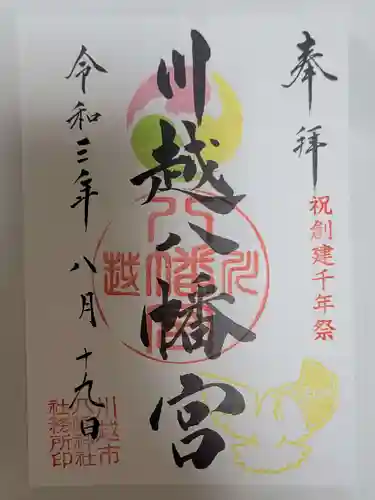 奉拝
祝創建千年祭
川越八幡宮
令和三年八月十九日
川越市
八幡神社
社務所印